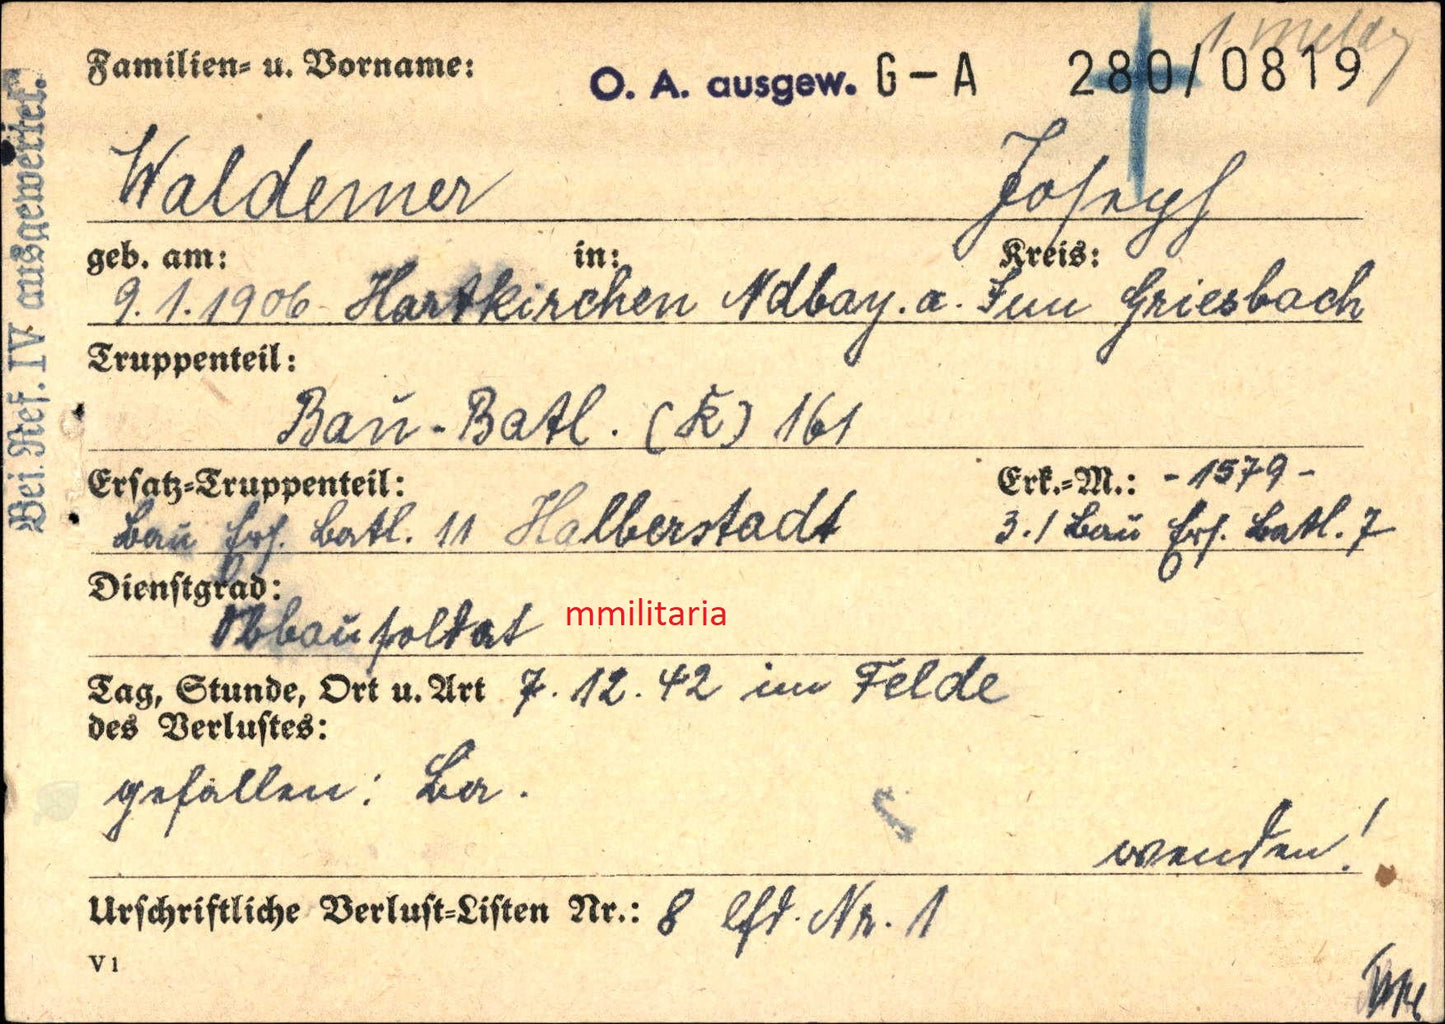 1 Meldg
Familien= u. Vorname: O. A. ausgew. G-A 280/0819
Waldemer Joseph
geb. am: in: Kreis:
9.1.1906 Hartkirchen Ndbay. a. Inn Griesbach
Truppenteil:
Bau-Batl. (K) 161
Ersatz=Truppenteil: Erk.=M.: -1579-
Bau Ers. Batl. 11 Halberstadt 3./Bau Ers. Batl. 7
Dienstgrad:
Obbausoldat mmilitaria
Tag, Stunde, Ort u. Art 7.12.42 im Felde
des Verlustes:
gefallen:
wenden!
Urschriftliche Verlust=Listen Nr.: 8 lfd. Nr. 1
V1
Bei. Ref. IV ausgewertet.